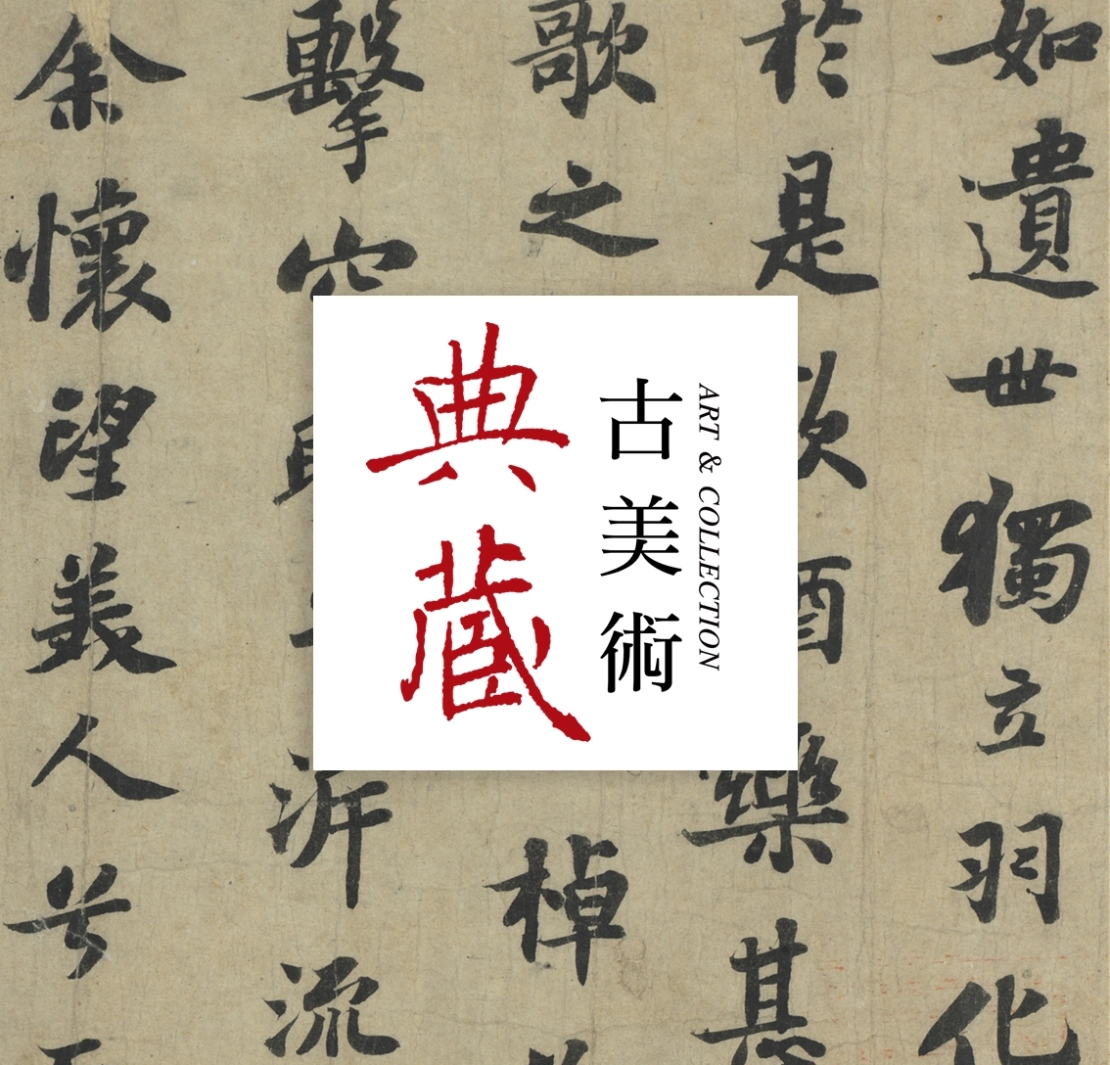 如遺世獨立羽化
於是
樂甚
歌之
棹
擊空
泝流
余懷望美人兮
典藏
古美術
ART & COLLECTION